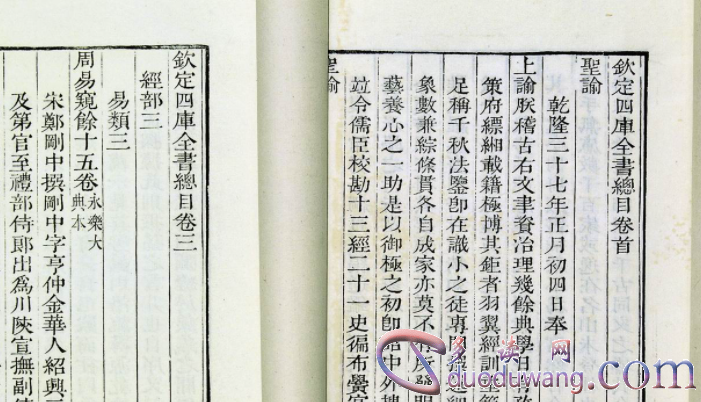 欽定四庫全書總目卷首
聖諭
乾隆三十七年正月初四日奉
上諭朕稽古右文聿資治理幾餘典學日
策府縹緗載籍極博其鉅者羽翼經訓垂範
足稱千秋法鑒卽在識小之徒專門撰述細
象數兼綜條貫各自成家亦莫不有所發明
藝養心之一助是以御極之初卽詔中外搜
竝令儒臣校勘十三經二十一史徧布黌宮
聖諭
欽定四庫全書總目卷三
經部三
易類三
周易窺餘十五卷永樂大典本
宋鄭剛中撰剛中字亨仲金華人紹興
及第官至禮部侍郎出爲川陝宣撫副使
多读网
duodutwang.com